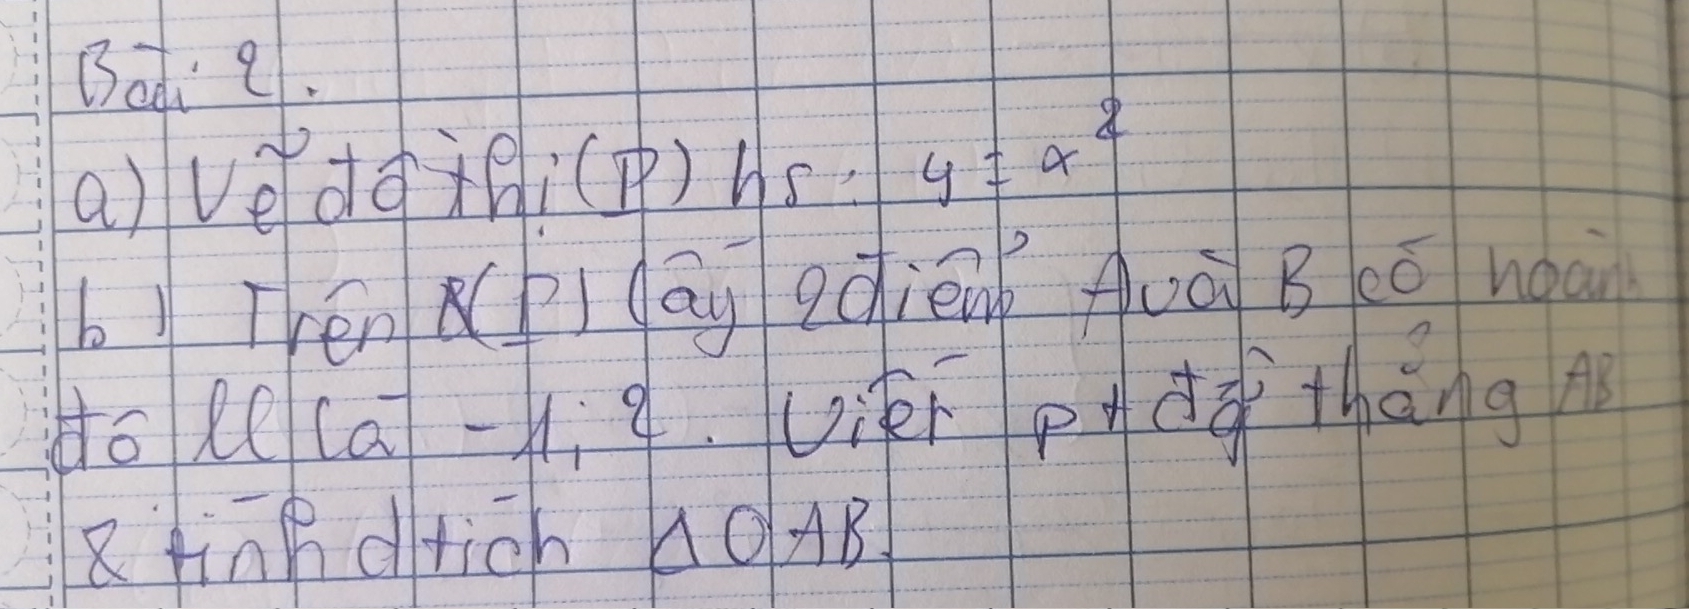 Bài 2.
a) Vẽ đồ thị (P) hs: y = x²
b) Trên (P) lấy 2 điểm A và B có hoành
độ ll là -1; 2. Viết pt đg thẳng AB
& tính dtích ΔOAB.